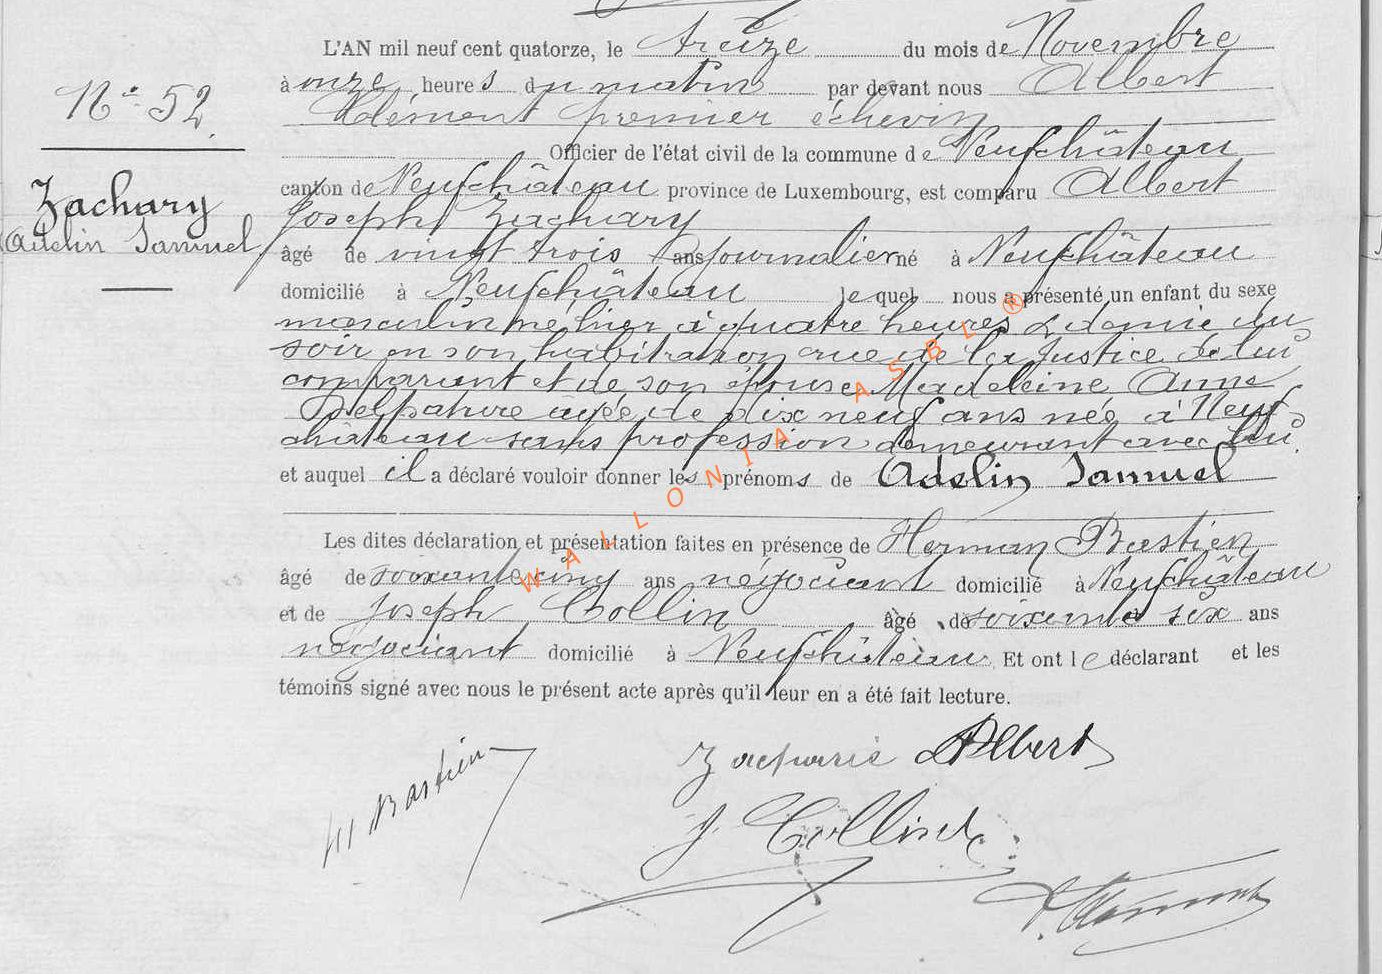 L'AN mil neuf cent quatorze, le treize du mois de Novembre
N° 52.
à onze heures du matin par devant nous Albert
Clément premier échevin
Officier de l'état civil de la commune de Neufchâteau
canton de Neufchâteau province de Luxembourg, est comparu Albert
Zachary
Adelin Samuel
Joseph Zachary
âgé de vingt trois ans journalier né à Neufchâteau
domicilié à Neufchâteau lequel nous a présenté un enfant du sexe
masculin né hier à quatre heures & demie du
soir en son habitation rue de la Justice de lui
comparant et de son épouse Madeleine Anne
Delpature âgée de dix neuf ans née à Neuf-
château sans profession demeurant avec lui.
et auquel il a déclaré vouloir donner les prénoms de Adelin Samuel
Les dites déclaration et présentation faites en présence de Herman Bastien
âgé de soixante cinq ans négociant domicilié à Neufchâteau
et de Joseph Collin âgé de soixante six ans
négociant domicilié à Neufchâteau Et ont le déclarant et les
témoins signé avec nous le présent acte après qu'il leur en a été fait lecture.
Zacharie Albert
H Bastien
J Collin
A. Clément
WALLONIA ASBL ®